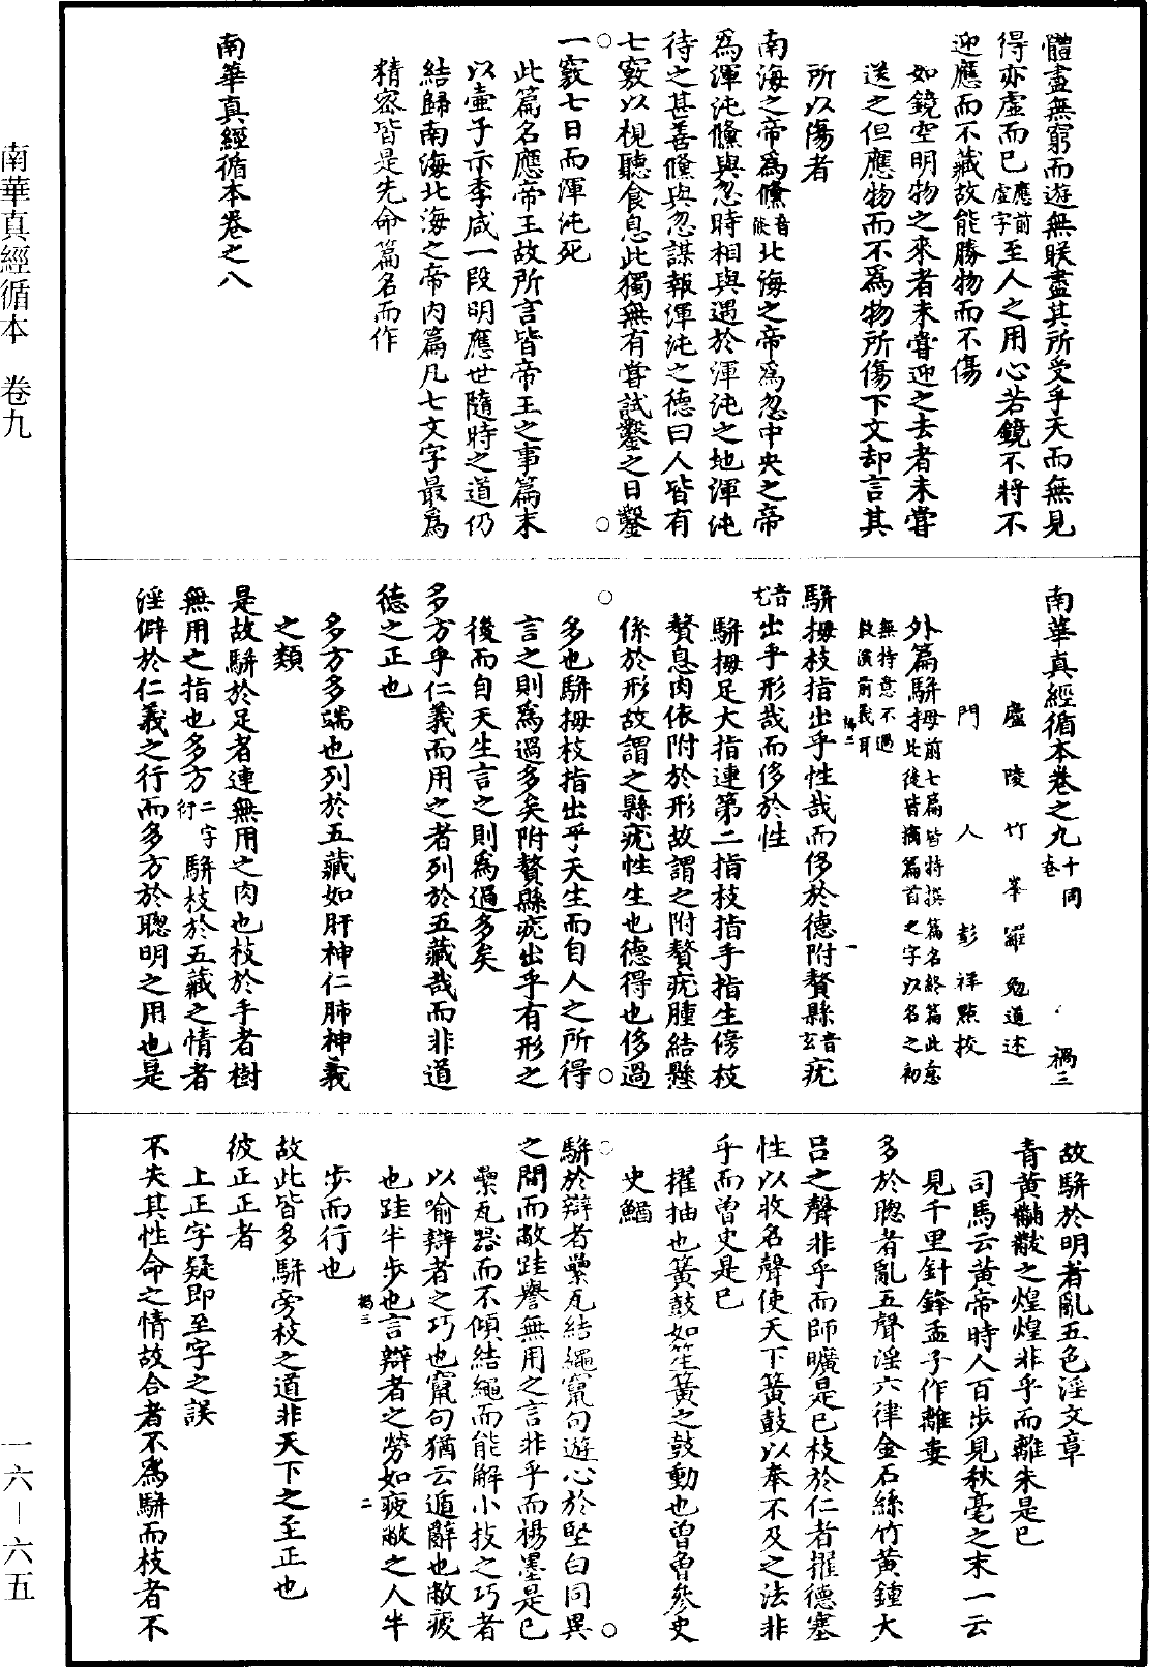 南華真經循本　卷九
一六—六五
體盡無窮而遊無朕盡其所受乎天而無見
得亦虛而已應前虛字至人之用心若鏡不將不
迎應而不藏故能勝物而不傷
如鏡空明物之來者未嘗迎之去者未嘗
送之但應物而不爲物所傷下文却言其
所以傷者
南海之帝爲儵音倏北海之帝爲忽中央之帝
爲渾沌儵與忽時相與遇於渾沌之地渾沌
待之甚善儵與忽謀報渾沌之德曰人皆有
七竅以視聽食息此獨無有嘗試鑿之日鑿
一竅七日而渾沌死
此篇名應帝王故所言皆帝王之事篇末
以壺子示季咸一段明應世隨時之道仍
結歸南海北海之帝內篇凡七文字最爲
精密皆是先命篇名而作
南華真經循本卷之八
南華真經循本卷之九十同卷　禍三
廬陵竹峯羅勉道述
門人彭祥點校
外篇駢拇前七篇皆特撰篇名終篇此愈
此後皆摘篇首之字以名之初
無特意不過
敷演前義耳
禍二
駢拇枝指出乎性哉而侈於德附贅縣音玄疣
音尤出乎形哉而侈於性
駢拇足大指連第二指枝指手指生傍枝
贅息肉依附於形故謂之附贅疣腫結懸
係於形故謂之縣疣性生也德得也侈過
多也駢拇枝指出乎天生而自人之所得
言之則爲過多矣附贅縣疣出乎有形之
後而自天生言之則爲過多矣
多方乎仁義而用之者列於五藏哉而非道
德之正也
多方多端也列於五藏如肝神仁肺神義
之類
是故駢於足者連無用之肉也枝於手者樹
無用之指也多方二字衍駢枝於五藏之情者
淫僻於仁義之行而多方於聰明之用也是
故駢於明者亂五色淫文章
青黃黼黻之煌煌非乎而離朱是已
司馬云黃帝時人百步見秋毫之末一云
見千里針鋒孟子作離婁
多於聰者亂五聲淫六律金石絲竹黃鍾大
呂之聲非乎而師曠是已枝於仁者擢德塞
性以收名聲使天下簧鼓以奉不及之法非
乎而曾史是已
擢抽也簧鼓如笙簧之鼓動也曾曾參史
史鰌
駢於辯者纍瓦結繩竄句遊心於堅白同異
之間而敝跬譽無用之言非乎而楊墨是已
纍瓦器而不傾結繩而能解小技之巧者
以喻辯者之巧也竄句猶云遁辭也敝疲
也跬半步也言辯者之勞如疲敝之人半
步而行也
禍三
二
故此皆多駢旁枝之道非天下之至正也
彼正正者
上正字疑即至字之誤
不失其性命之情故合者不爲駢而枝者不